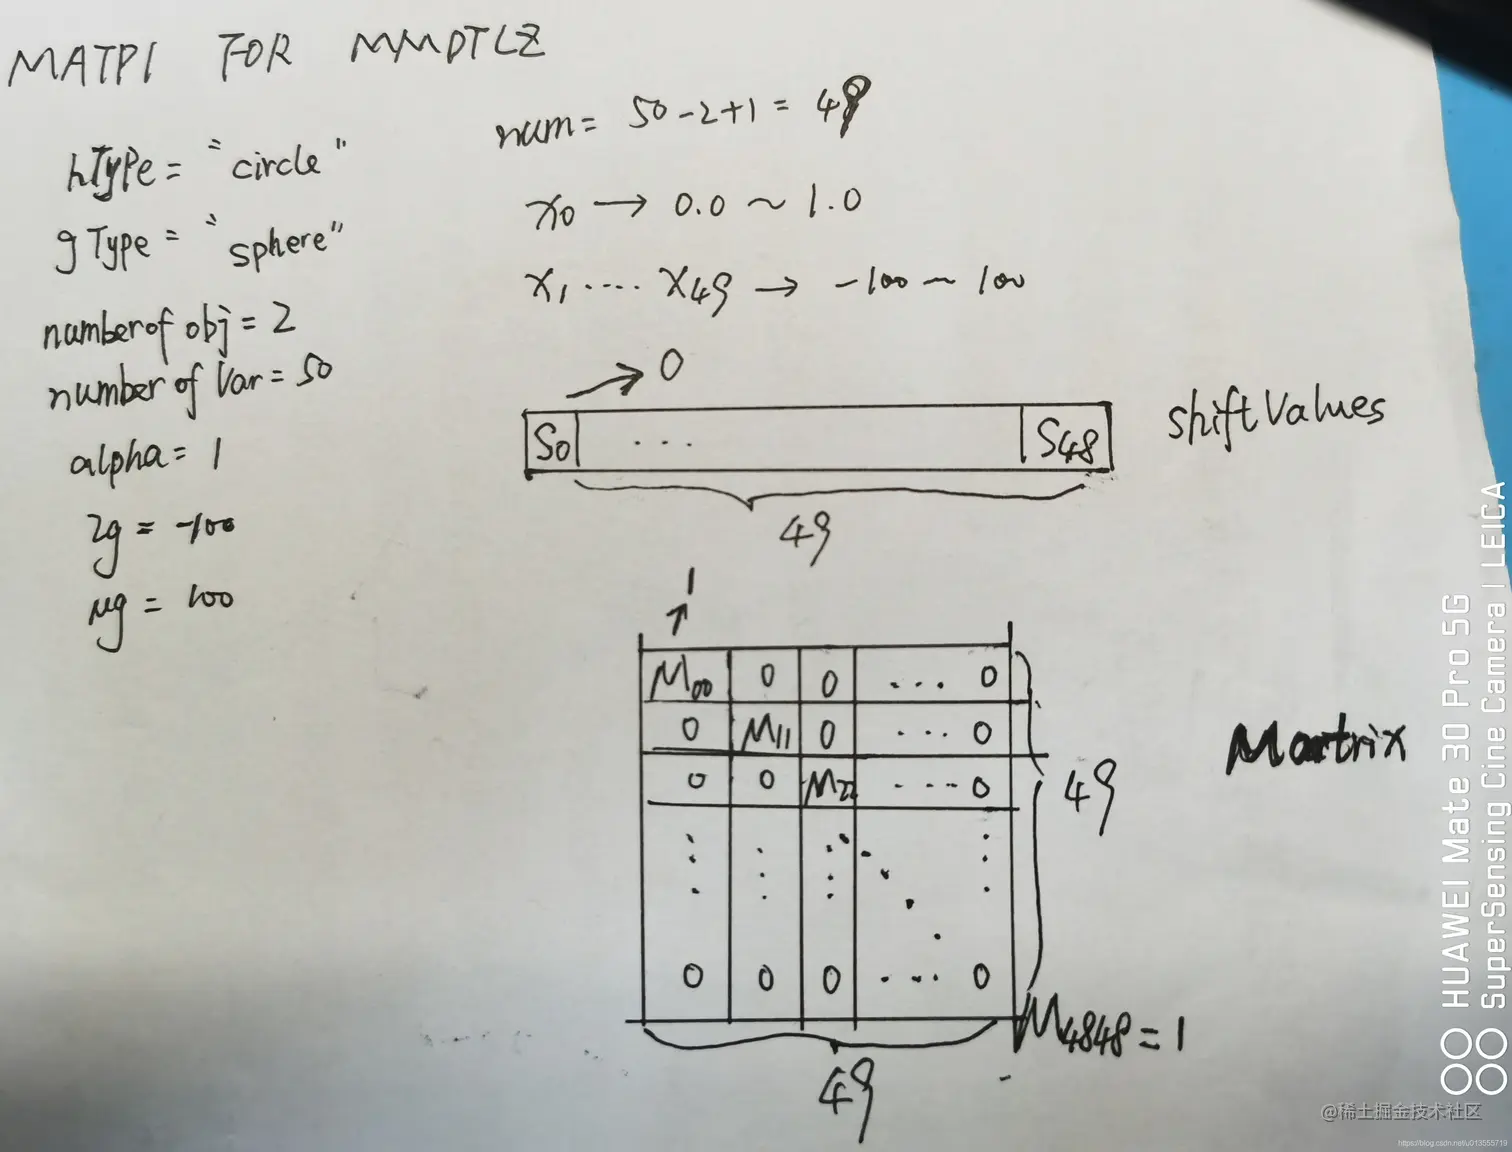 MATP1 FOR MMDTLZ
hType = "circle"
gType = "sphere"
number of obj = 2
number of Var = 50
alpha = 1
lg = -100
μg = 100
num = 50 - 2 + 1 = 49
x0 → 0.0 ~ 1.0
x1 .... x49 → -100 ~ 100
0
S0 ... S48
shiftValues
49
1
M00 0 0 ... 0
0 M11 0 ... 0
0 0 M22 ... 0
49
Matrix
0 0 0 ... 0
M4848 = 1
49
HUAWEI Mate 30 Pro 5G
SuperSensing Cine Camera | LEICA
@稀土掘金技术社区
https://blog.csdn.net/u013555719